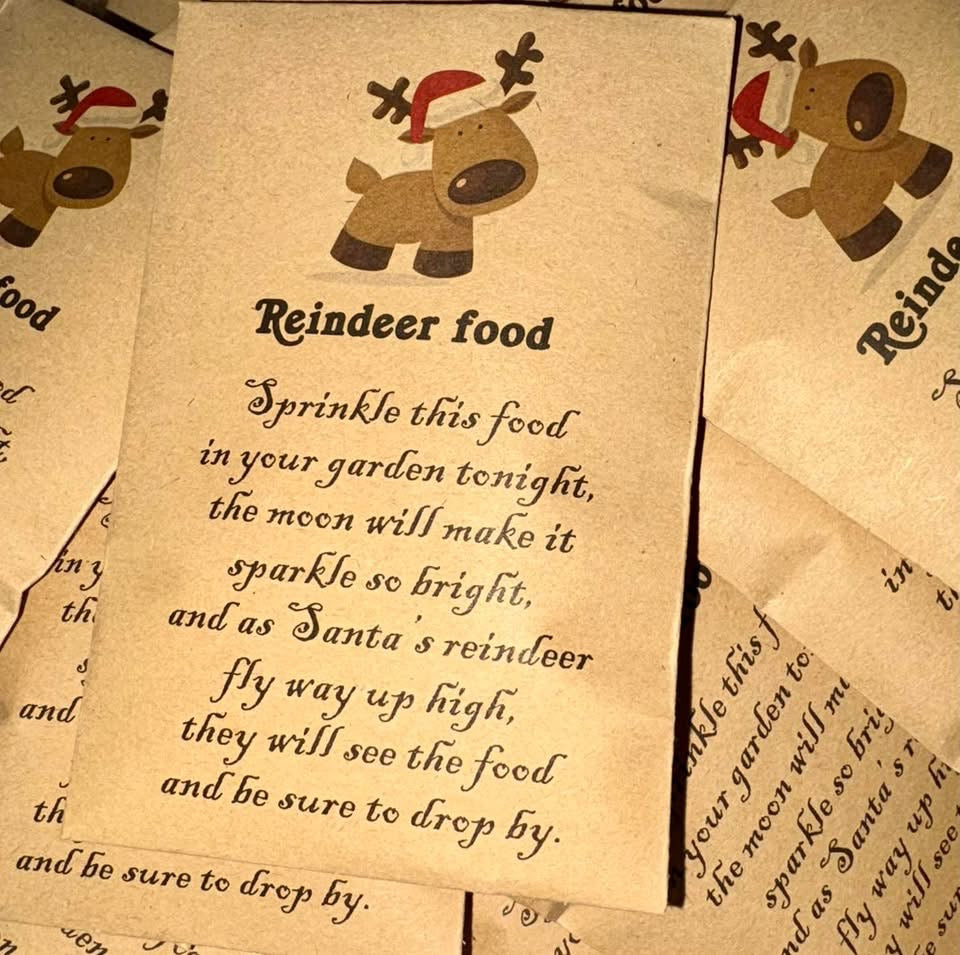 Reindeer food
Sprinkle this food
in your garden tonight,
the moon will make it
sparkle so bright,
and as Santa's reindeer
fly way up high,
they will see the food
and be sure to drop by.
food
in y
th
and
th
and be sure to drop by.
Reinde
in
nkle this f
your garden to
the moon will m
sparkle so brig
nd as Santa's r
fly way up h
y will see t
e sur